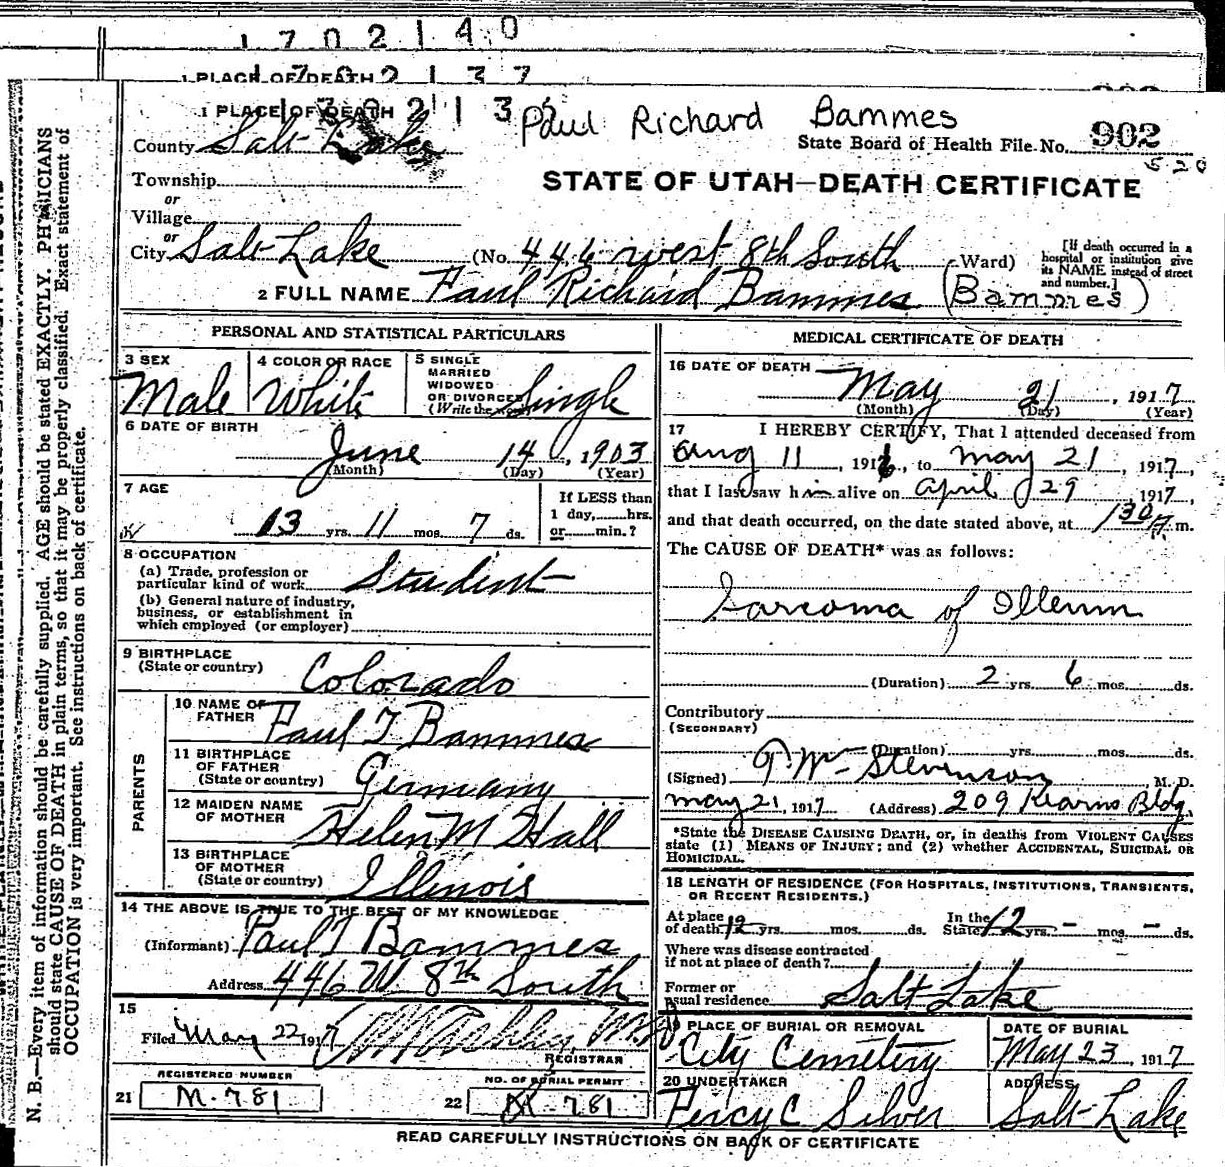 1702140
1 PLACE OF DEATH 1702137
1 PLACE OF DEATH
Paul Richard Bammes
County Salt Lake
State Board of Health File No. 902
520
Township
or
Village
or
STATE OF UTAH—DEATH CERTIFICATE
City Salt Lake (No. 446 west 8th South Ward)
[If death occurred in a hospital or institution give its NAME instead of street and number.]
2 FULL NAME Paul Richard Bammes (Bammes)
PERSONAL AND STATISTICAL PARTICULARS
3 SEX Male
4 COLOR OR RACE White
5 SINGLE MARRIED WIDOWED OR DIVORCED (Write the word) Single
6 DATE OF BIRTH
June 14, 1903
(Month) (Day) (Year)
7 AGE
13 yrs. 11 mos. 7 ds.
If LESS than 1 day, hrs. or min.?
8 OCCUPATION
(a) Trade, profession or particular kind of work Student
(b) General nature of industry, business, or establishment in which employed (or employer)
9 BIRTHPLACE
(State or country) Colorado
PARENTS
10 NAME OF FATHER Paul T Bammes
11 BIRTHPLACE OF FATHER (State or country) Germany
12 MAIDEN NAME OF MOTHER Helen M Hall
13 BIRTHPLACE OF MOTHER (State or country) Illinois
14 THE ABOVE IS TRUE TO THE BEST OF MY KNOWLEDGE
(Informant) Paul T Bammes
Address 446 W 8th South
15
Filed May 22 1917
REGISTRAR
REGISTERED NUMBER
21 M-781
NO. OF BURIAL PERMIT
22 M-781
MEDICAL CERTIFICATE OF DEATH
16 DATE OF DEATH
May 21, 1917
(Month) (Day) (Year)
17 I HEREBY CERTIFY, That I attended deceased from
Aug 11, 1916, to May 21, 1917,
that I last saw him alive on April 29, 1917,
and that death occurred, on the date stated above, at 130 A. m.
The CAUSE OF DEATH* was as follows:
Sarcoma of Illeum
(Duration) 2 yrs. 6 mos. ds.
Contributory
(SECONDARY)
(Duration) yrs. mos. ds.
(Signed) Stevenson M. D.
May 21, 1917 (Address) 209 Kearns Bldg.
*State the DISEASE CAUSING DEATH, or, in deaths from VIOLENT CAUSES
state (1) MEANS OF INJURY; and (2) whether ACCIDENTAL, SUICIDAL OR
HOMICIDAL.
18 LENGTH OF RESIDENCE (FOR HOSPITALS, INSTITUTIONS, TRANSIENTS,
OR RECENT RESIDENTS.)
At place of death 12 yrs. mos. ds. In the State 12 yrs. - mos. - ds.
Where was disease contracted
if not at place of death?
Former or
usual residence Salt Lake
19 PLACE OF BURIAL OR REMOVAL
City Cemetery
DATE OF BURIAL
May 23, 1917
20 UNDERTAKER
Percy C Silver
ADDRESS
Salt Lake
READ CAREFULLY INSTRUCTIONS ON BACK OF CERTIFICATE
N. B.—Every item of information should be carefully supplied. AGE should be stated EXACTLY. PHYSICIANS
should state CAUSE OF DEATH in plain terms, so that it may be properly classified. Exact statement of
OCCUPATION is very important. See instructions on back of certificate.